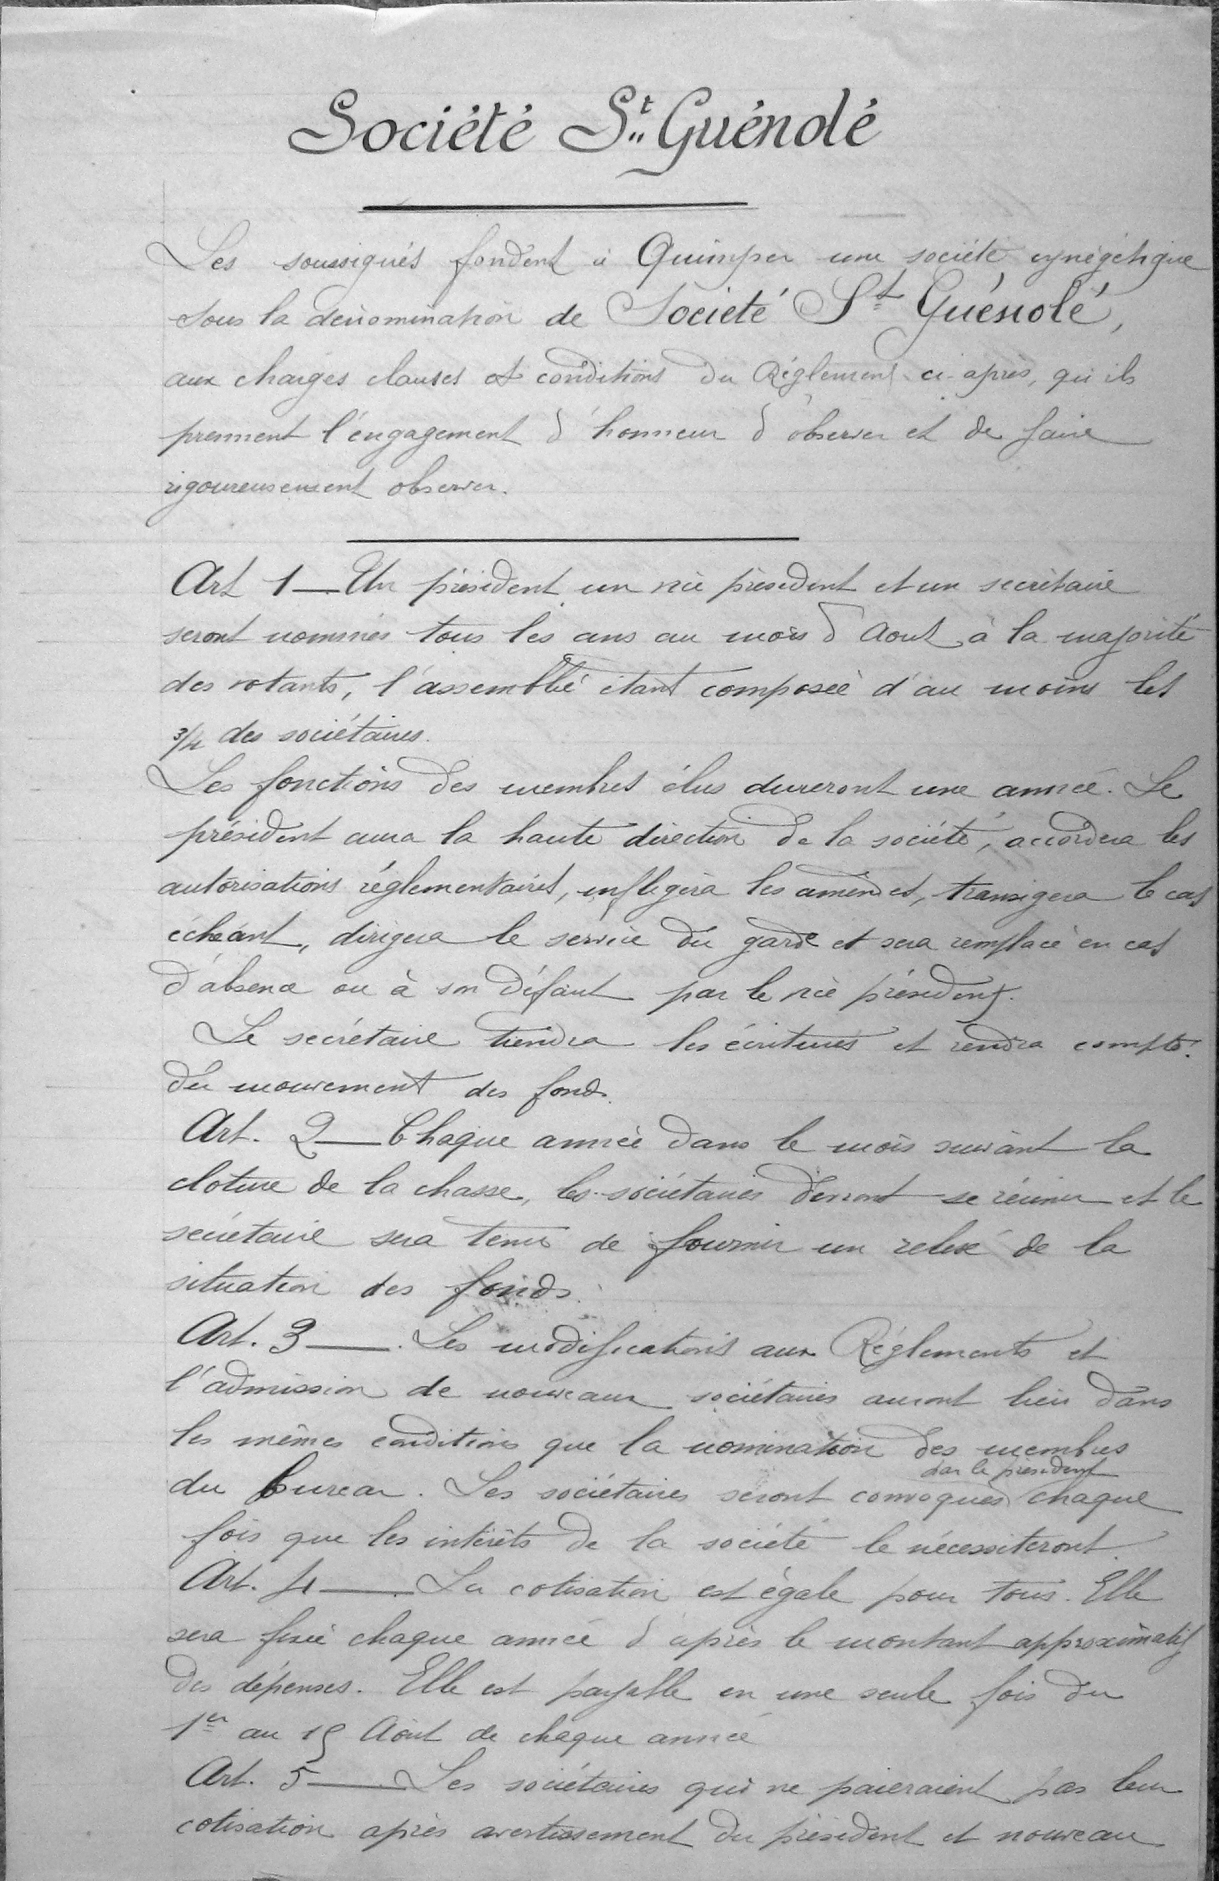 Société St. Guénolé
Les soussignés fondent à Quimper une société cynégétique
sous la dénomination de Société St Guénolé,
aux charges clauses et conditions du Réglement ci-après, qu'ils
prennent l'engagement d'honneur d'observer et de faire
rigoureusement observer.
Art 1 — Un président un vice président et un secrétaire
seront nommés tous les ans au mois d'Aout à la majorité
des votants, l'assemblée étant composée d'au moins les
3/4 des sociétaires.
Les fonctions des membres élus dureront une année. Le
président aura la haute direction de la société, accordera les
autorisations réglementaires, infligera les amendes, transigera le cas
échéant, dirigera le service du garde et sera remplacé en cas
d'absence ou à son défaut par le vice président.
Le secrétaire tiendra les écritures et rendra compte
du mouvement des fonds.
Art. 2 — Chaque année dans le mois suivant la
cloture de la chasse, les sociétaires devront se réunir et le
secrétaire sera tenu de fournir un relevé de la
situation des fonds.
Art. 3 — . Les modifications aux Réglements et
l'admission de nouveaux sociétaires auront lieu dans
les mêmes conditions que la nomination des membres
du bureau. Les sociétaires seront convoqués par le président chaque
fois que les intérêts de la société le nécessiteront.
Art. 4 — La cotisation est égale pour tous. Elle
sera fixée chaque année d'après le montant approximatif
des dépenses. Elle est payable en une seule fois du
1er au 15 Août de chaque année
Art. 5 — Les sociétaires qui ne paieraient pas leur
cotisation après avertissement du président et nouveau